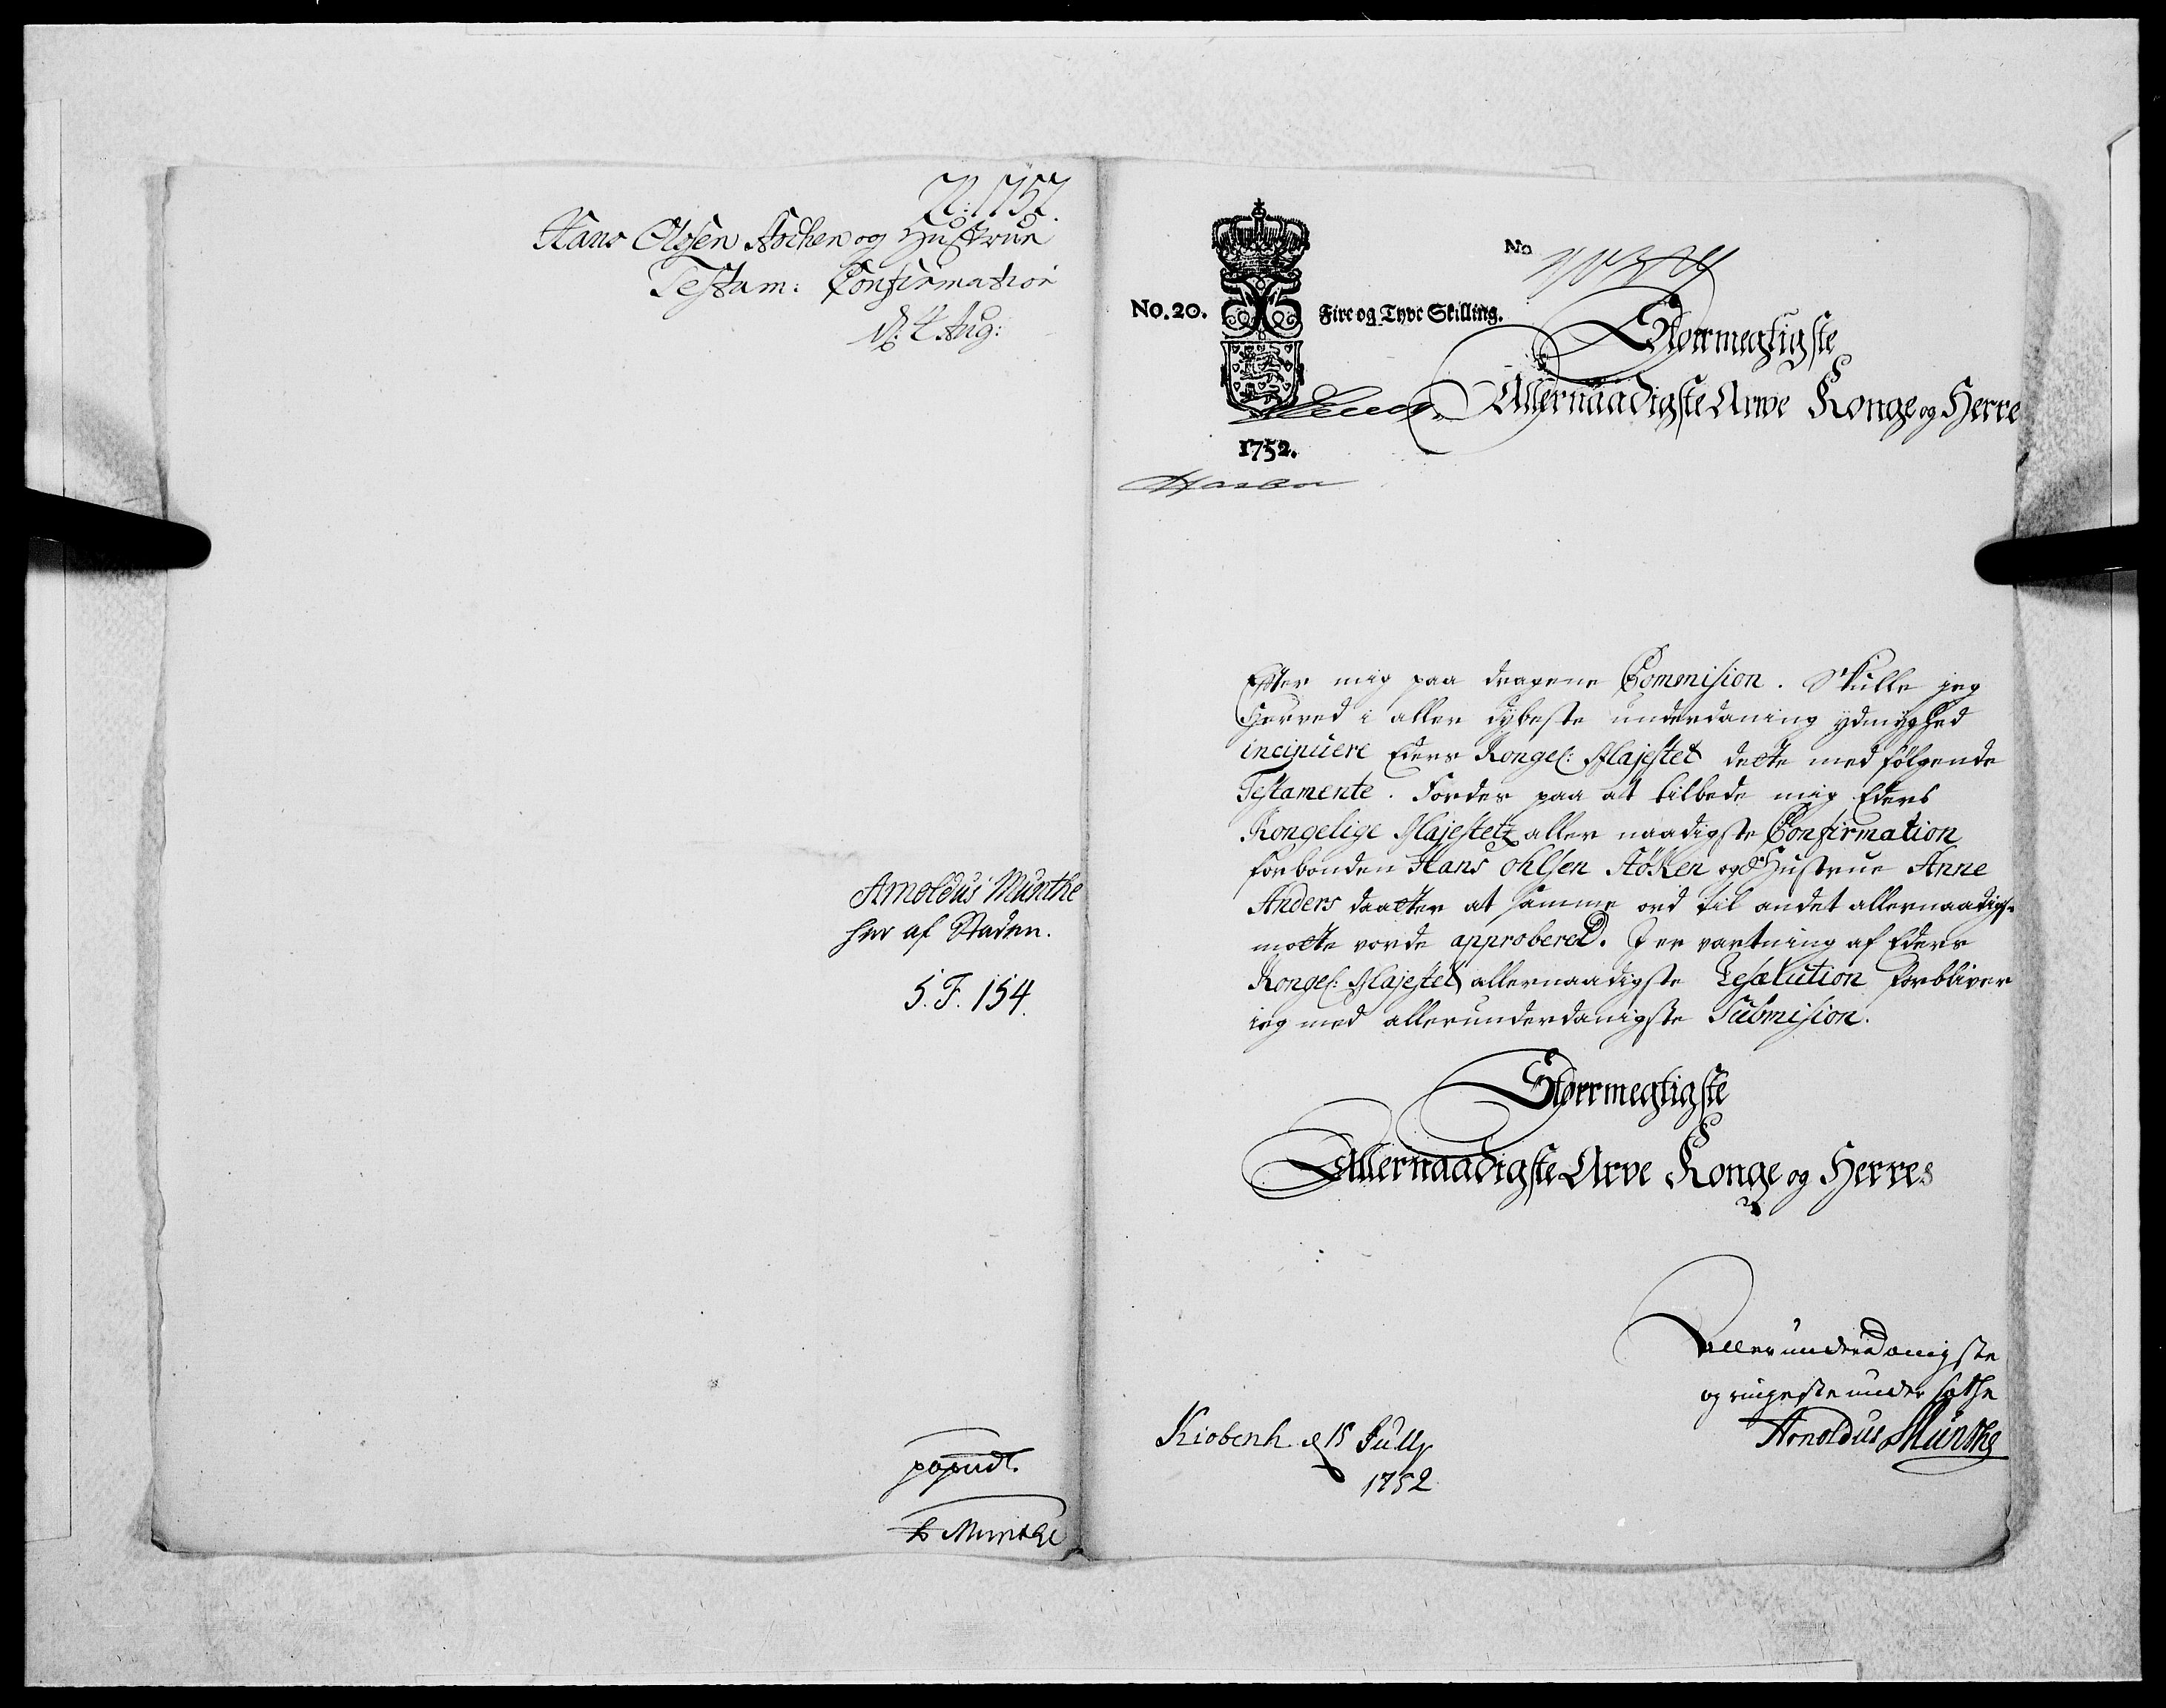 Hans Olssen Stochen og Hustrue
Testam: Confirmation
d: 4 Aug:
Arnoldus Munthe
her af Staden.
5. F. 154.
Munthe
No. 20.
Fire og Tyve Skilling.
No
1752.
Stormegtigste
Allernaadigste Arve Konge og Herre
Efter mig paa dragene Commission. Skulle jeg
herved i aller dybeste underdaning ydmyghed
incinuere Eders Kongel: Majestet dette med følgende
Testamente. Forder paa at tilbede mig Eders
Kongelige Majestetz aller naadigste Confirmation
for bonden Hans Ohlsen Støken og Hustrue Anne
Anders daatter at samme ord til andet allernaadigst
motte vorde approbered. J er vartning af Eders
Kongel: Majestet allernaadigste Resolution forbliver
ieg med allerunderdanigste Submission.
Storrmegtigste
Allernaadigste Arve Konge og Herres
Allerunderdanigste
og ringeste undersotte
Arnoldus Munthe
Kiobenh d 15 July
1752